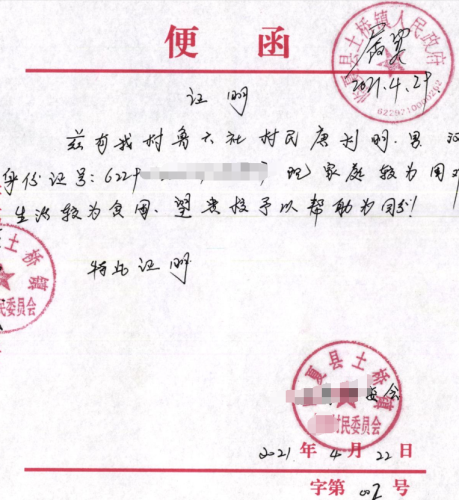 便函
夏县土桥镇人民政府
属实
证明
兹有我村鲁六社村民唐利明.男
身份证号:622 现家庭较为困
生活较为贫困、望贵校予以帮助为盼!
县土桥镇
民委员会
特此证明
夏县土桥镇
委会
村民委员会
2021年4月22日
字第002号